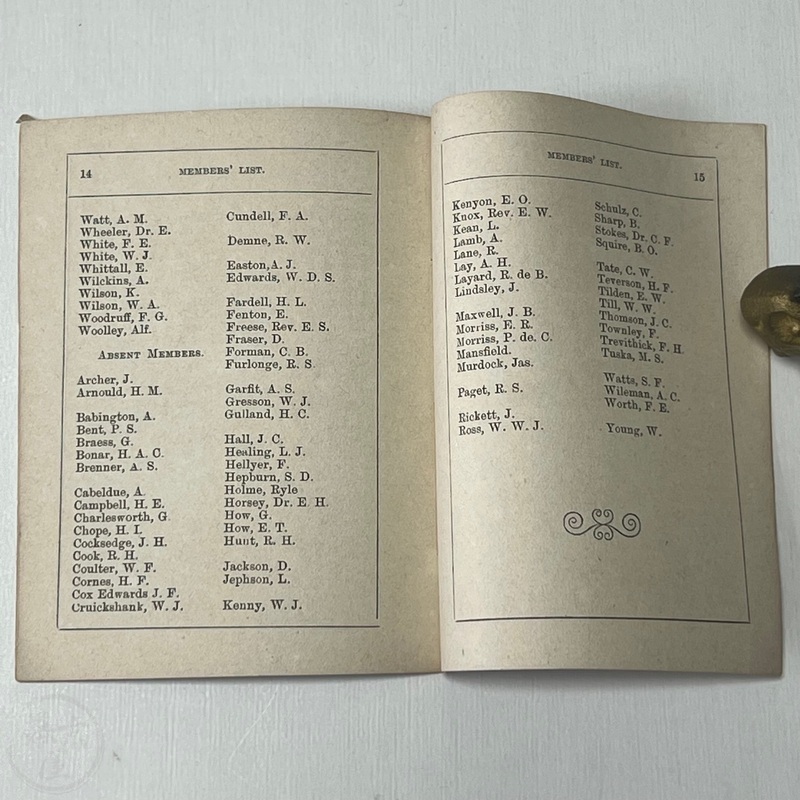 14
MEMBERS' LIST.
Watt, A. M.
Wheeler, Dr. E.
White, F. E.
White, W. J.
Whittall, E.
Wilckins, A.
Wilson, K.
Wilson, W. A.
Woodruff, F. G.
Woolley, Alf.
ABSENT MEMBERS.
Archer, J.
Arnould, H. M.
Babington, A.
Bent, P. S.
Braess, G.
Bonar, H. A. C.
Brenner, A. S.
Cabeldue, A.
Campbell, H. E.
Charlesworth, G.
Chope, H. I.
Cocksedge, J. H.
Cook, R. H.
Coulter, W. F.
Cornes, H. F.
Cox Edwards J. F.
Cruickshank, W. J.
Cundell, F. A.
Demne, R. W.
Easton, A. J.
Edwards, W. D. S.
Fardell, H. L.
Fenton, E.
Freese, Rev. E. S.
Fraser, D.
Forman, C. B.
Furlonge, R. S.
Garfit, A. S.
Gresson, W. J.
Gulland, H. C.
Hall, J. C.
Healing, L. J.
Hellyer, F.
Hepburn, S. D.
Holme, Ryle
Horsey, Dr. E. H.
How, G.
How, E. T.
Hunt, R. H.
Jackson, D.
Jephson, L.
Kenny, W. J.
MEMBERS' LIST.
15
Kenyon, E. O.
Knox, Rev. E. W.
Kean, L.
Lamb, A.
Lane, R.
Lay, A. H.
Layard, R. de B.
Lindsley, J.
Maxwell, J. B.
Morriss, E. R.
Morriss, P. de. C.
Mansfield.
Murdock, Jas.
Paget, R. S.
Rickett, J.
Ross, W. W. J.
Schulz, C.
Sharp, B.
Stokes, Dr. C. F.
Squire, B. O.
Tate, C. W.
Teverson, H. F.
Tilden, E. W.
Till, W. W.
Thomson, J. C.
Townley, F.
Trevithick, F. H.
Tuska, M. S.
Watts, S. F.
Wileman, A. C.
Worth, F. E.
Young, W.